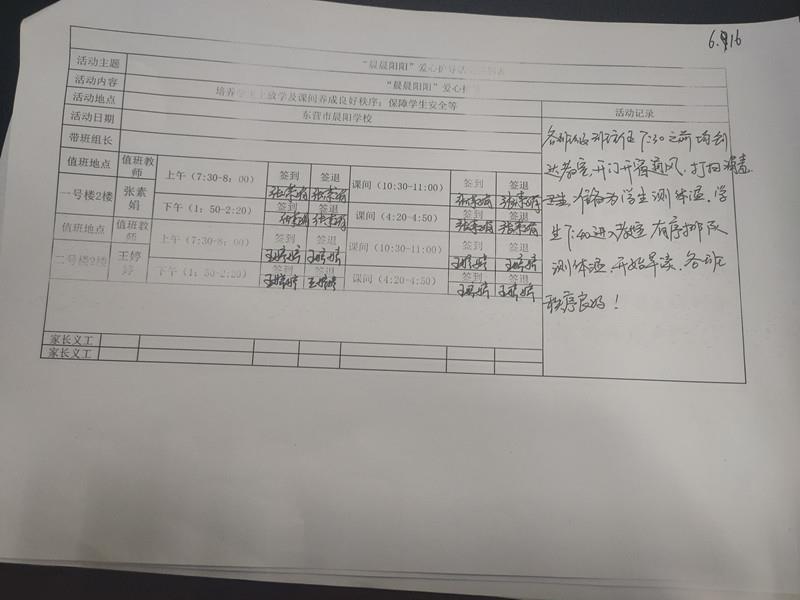 6.16
"晨晨阳阳"爱心护导
活动主题
"晨晨阳阳"爱心护
活动内容
培养学生上放学及课间养成良好秩序；保障学生安全等
活动地点
东营市晨阳学校
活动日期
带班组长
活动记录
值班地点 值班教师 上午（7:30-8：00） 签到 签退 课间（10:30-11:00） 签到 签退
一号楼2楼 张素娟 张素娟 张素娟 张素娟 张素娟
下午（1：50-2:20） 签到 签退 课间（4:20-4:50） 签到 签退
张素娟 张素娟 张素娟 张素娟
值班地点 值班教师 上午（7:30-8：00） 签到 签退 课间（10:30-11:00） 签到 签退
二号楼2楼 王婷婷 王婷婷 王婷婷 王婷婷 王婷婷
下午（1：50-2:20） 签到 签退 课间（4:20-4:50） 签到 签退
王婷婷 王婷婷 王婷婷 王婷婷
家长义工
家长义工
各班级班主任7:30之前均到
达教室，开门开窗通风，打扫消毒
卫生，准备为学生测体温，学
生7:40进入教室有序排队
测体温，开始早读，各班
秩序良好！